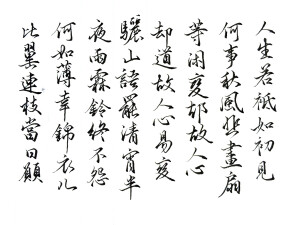 人生若祗如初見
何事秋風悲畫扇
等閑變却故人心
却道故人心易變
驪山語罷清宵半
夜雨霖鈴終不怨
何如薄幸錦衣兒
比翼連枝當日願